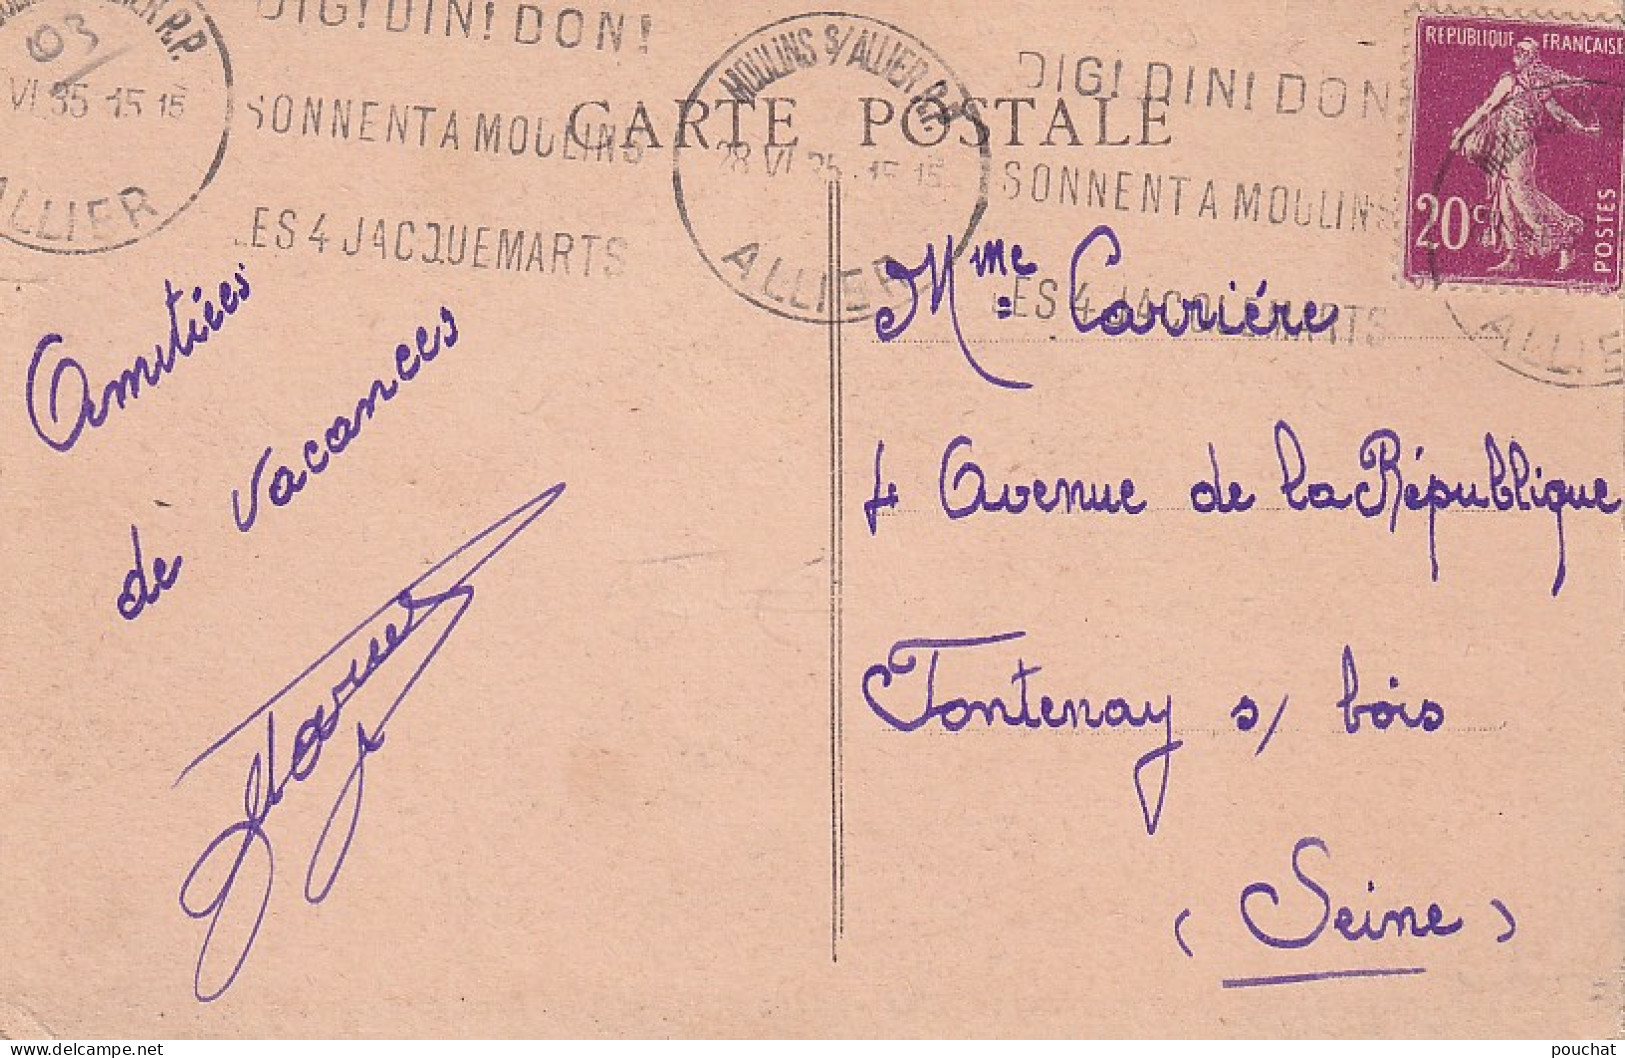 DIG! DIN! DON!
SONNENT A MOULINS
LES 4 JACQUEMARTS
R.P.
VI 35 15 15
ALLIER
03
MOULINS S/ALLIER R.P.
28 VI 35 15 15
ALLIER
DIG! DIN! DON
SONNENT A MOULINS
LES 4 JACQUEMARTS
ALLIE
REPUBLIQUE FRANÇAISE
20c
POSTES
CARTE POSTALE
Amitiées
de vacances
Mme Carriére
4 Avenue de la République
Fontenay s/ bois
(Seine)
pouchat